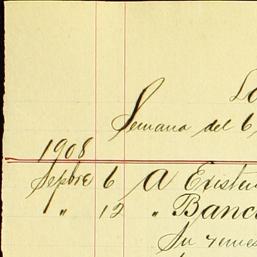 Semana del 6
1908
Sepbre 6 A Existen
" 12 " Banc
Su remes